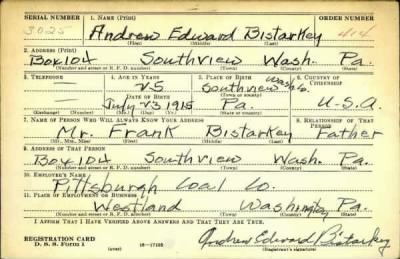 SERIAL NUMBER 1. NAME (Print) ORDER NUMBER
3025 Andrew Edward Bistarkey 414
(First) (Middle) (Last)
2. ADDRESS (Print)
Box 104 Southview Wash. Pa.
(Number and street or R. F. D. number) (Town) (County) (State)
3. TELEPHONE 4. AGE IN YEARS 5. PLACE OF BIRTH 6. COUNTRY OF CITIZENSHIP
— 25 Southview Wash Co.
DATE OF BIRTH (Town or county)
— July 23 1915 Pa. U.S.A.
(Exchange) (Number) (Mo.) (Day) (Yr.) (State or country)
7. NAME OF PERSON WHO WILL ALWAYS KNOW YOUR ADDRESS 8. RELATIONSHIP OF THAT PERSON
Mr. Frank Bistarkey Father
(Mr., Mrs., Miss) (First) (Middle) (Last)
9. ADDRESS OF THAT PERSON
Box 104 Southview Wash. Pa.
(Number and street or R. F. D. number) (Town) (County) (State)
10. EMPLOYER'S NAME
Pittsburgh Coal Co.
11. PLACE OF EMPLOYMENT OR BUSINESS
Westland Washington Pa.
(Number and street or R. F. D. number) (Town) (County) (State)
I AFFIRM THAT I HAVE VERIFIED ABOVE ANSWERS AND THAT THEY ARE TRUE.
REGISTRATION CARD
D. S. S. Form 1 16—17105 Andrew Edward Bistarkey